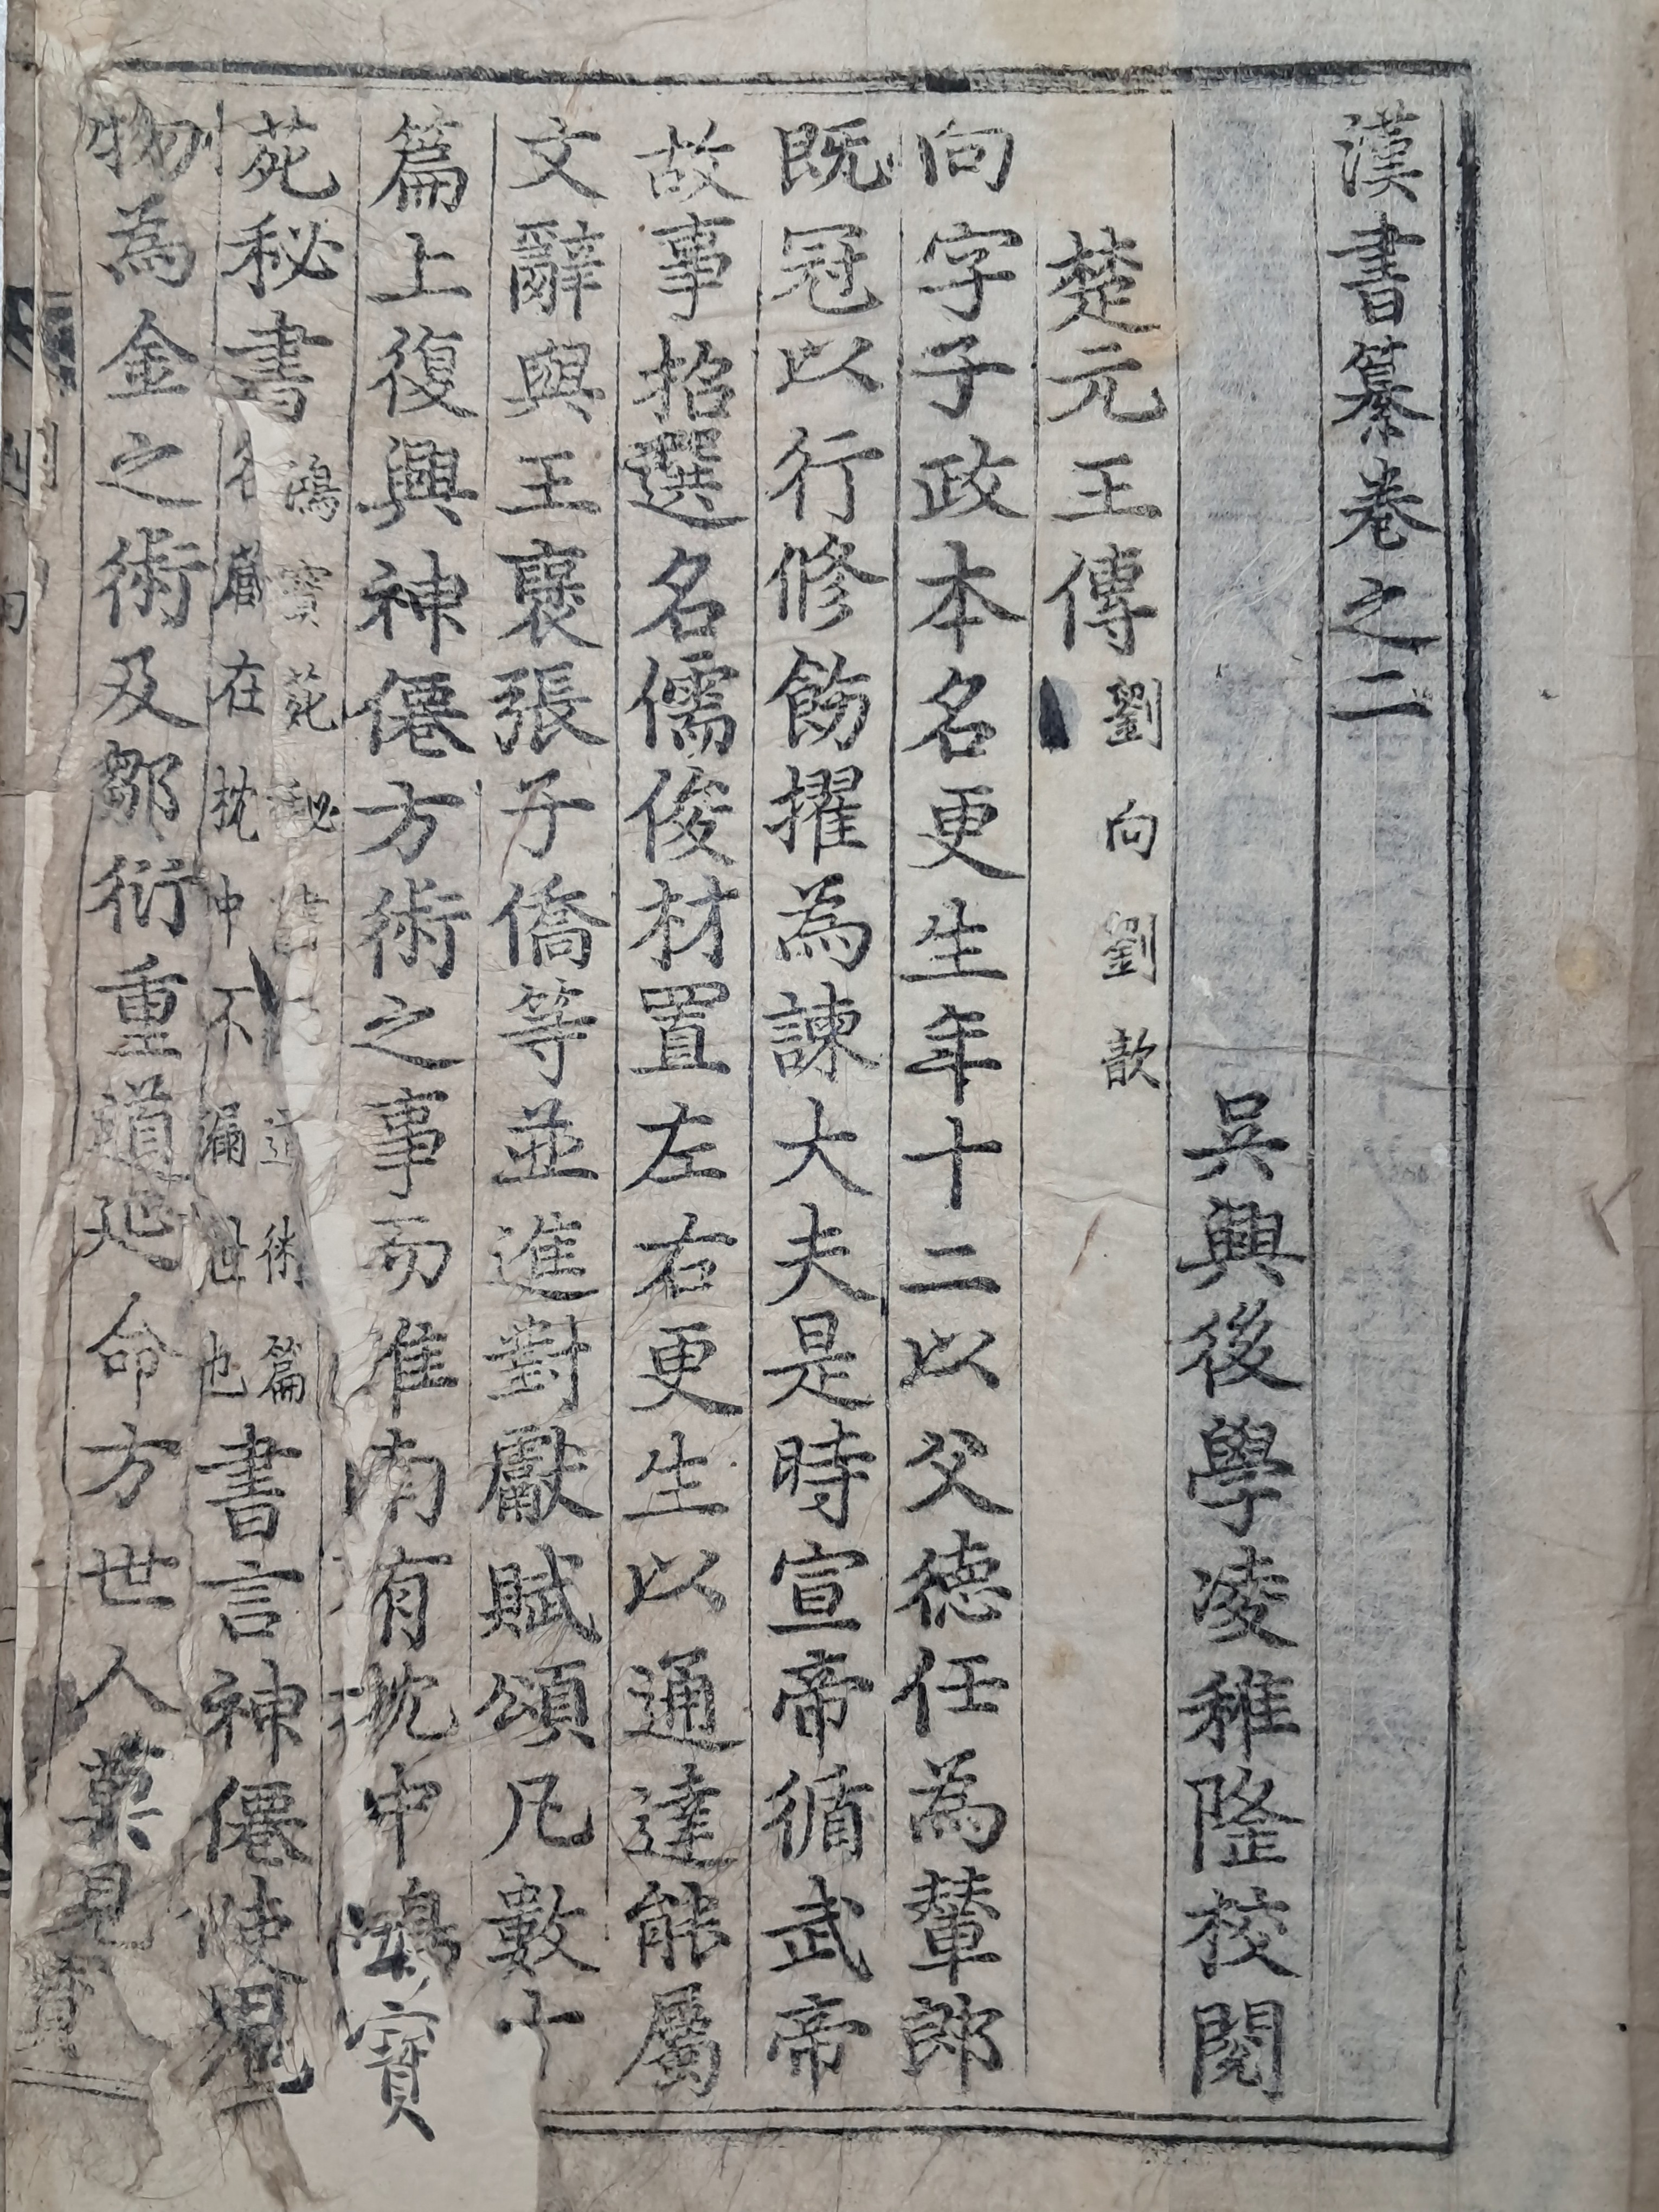 漢書纂卷之二
吳興後學凌稚隆校閱
楚元王傳 劉向劉歆
向字子政本名更生年十二以父德任為輦郎
既冠以行修飭擢為諫大夫是時宣帝循武帝
故事招選名儒俊材置左右更生以通達能屬
文辭與王褒張子僑等並進對獻賦頌凡數十
篇上復興神僊方術之事而淮南有枕中鴻寶
苑秘書 鴻寶苑秘書 道術篇
名藏在枕中不漏泄也 書言神僊使鬼
物為金之術及鄒衍重道延命方世人莫見